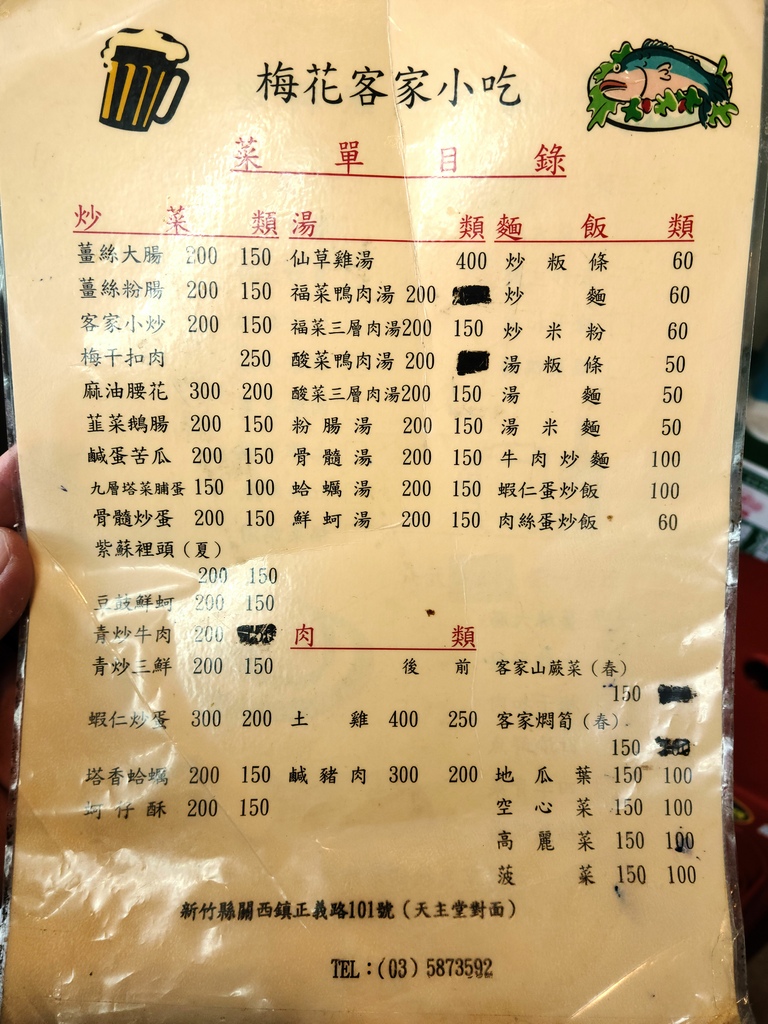 梅花客家小吃
菜單目錄
炒菜類
薑絲大腸 200 150
薑絲粉腸 200 150
客家小炒 200 150
梅干扣肉 250
麻油腰花 300 200
韮菜鵝腸 200 150
鹹蛋苦瓜 200 150
九層塔菜脯蛋 150 100
骨髓炒蛋 200 150
紫蘇裡頭（夏）
200 150
豆鼓鮮蚵 200 150
青炒牛肉 200
青炒三鮮 200 150
蝦仁炒蛋 300 200
塔香蛤蠣 200 150
蚵仔酥 200 150
湯類
仙草雞湯 400
福菜鴨肉湯 200
福菜三層肉湯 200 150
酸菜鴨肉湯 200
酸菜三層肉湯 200 150
粉腸湯 200 150
骨髓湯 200 150
蛤蠣湯 200 150
鮮蚵湯 200 150
肉類
後 前
土雞 400 250
鹹豬肉 300 200
麵飯類
炒粄條 60
炒麵 60
炒米粉 60
湯粄條 50
湯麵 50
湯米麵 50
牛肉炒麵 100
蝦仁蛋炒飯 100
肉絲蛋炒飯 60
客家山蕨菜（春）
150
客家燜筍（春）
150
地瓜葉 150 100
空心菜 150 100
高麗菜 150 100
菠菜 150 100
新竹縣關西鎮正義路101號（天主堂對面）
TEL：(03) 5873592